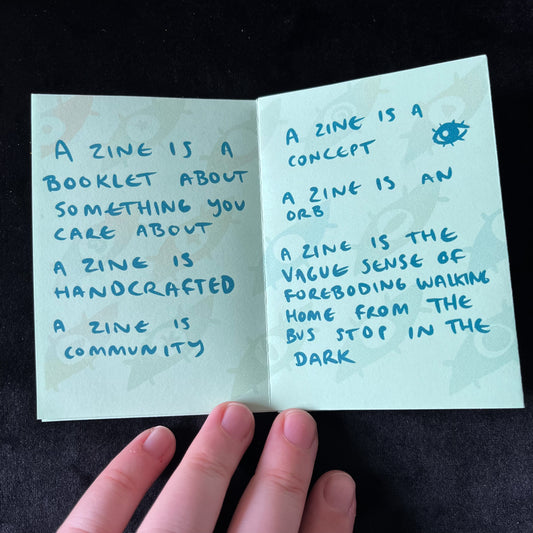 A ZINE IS A
BOOKLET ABOUT
SOMETHING YOU
CARE ABOUT
A ZINE IS
HANDCRAFTED
A ZINE IS
COMMUNITY
A ZINE IS A
CONCEPT
A ZINE IS AN
ORB
A ZINE IS THE
VAGUE SENSE OF
FOREBODING WALKING
HOME FROM THE
BUS STOP IN THE
DARK